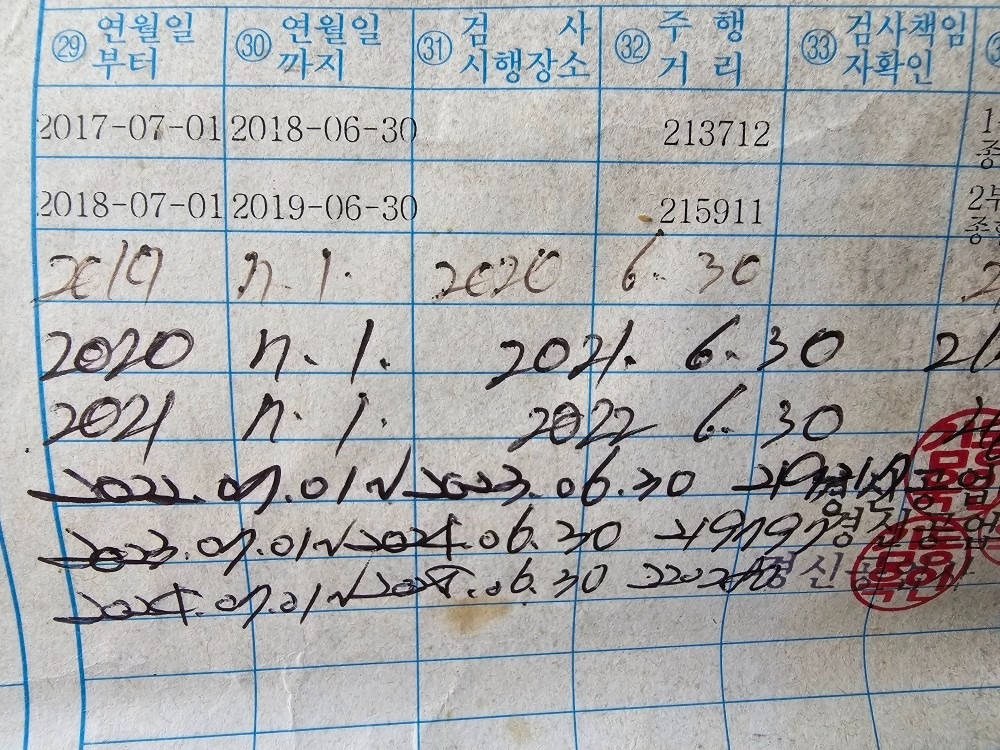 ㉙ 연월일부터 ㉚ 연월일까지 ㉛ 검사시행장소 ㉜ 주행거리 ㉝ 검사책임자확인
2017-07-01 2018-06-30 213712
2018-07-01 2019-06-30 215911
2019 7. 1. 2020 6. 30
2020 7. 1. 2021. 6. 30
2021 7. 1. 2022 6. 30
2022.07.01~2023.06.30
2023.07.01~2024.06.30
2024.07.01~2025.06.30 경신